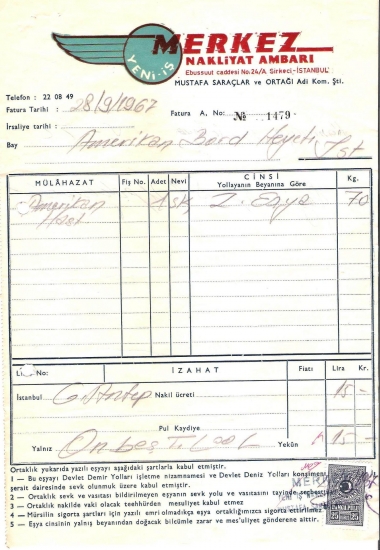 YENİ-İŞ
MERKEZ
NAKLİYAT AMBARI
Ebussuut caddesi No:24/A Sirkeci-İSTANBUL
MUSTAFA SARAÇLAR ve ORTAĞI Adi Kom. Şti.
Telefon : 22 08 49
Fatura Tarihi : 28/9/1967 Fatura A, No: № 1479
İrsaliye tarihi :
Bay Amerikan Bord Heyeti İst
MÜLÂHAZAT Fiş No. Adet Nevi CİNSİ Yollayanın Beyanına Göre Kg.
Amerikan 1 Sk Z. Eşya 70
Hast
No: İZAHAT Fiatı Lira Kr.
İstanbul G.Antep Nakil ücreti 15 -
Pul Kaydiye
Yalnız Onbeş T.L Yekûn 15 -
Ortaklık yukarıda yazılı eşyayı aşağıdaki şartlarla kabul etmiştir.
1 — Bu eşyayı Devlet Demir Yolları işletme nizamnamesi ve Devlet Deniz Yolları konşimento
şerait dairesinde sevk olunmak üzere kabul etmiştir.
2 — Ortaklık sevk ve vasıtası bildirilmeyen eşyanın sevk yolu ve vasıtasını tayinde serbesttir
3 — Ortaklık nakilde vaki olacak teehhürden mes'uliyet kabul etmez
4 — Mürsilin sigorta şartları için yazılı emri olmadıkça eşya ortaklığımızca sigorta ettirilmez
5 — Eşya cinsinin yalnış beyanından doğacak bilcümle zarar ve mes'uliyet gönderene aittir.
25 25